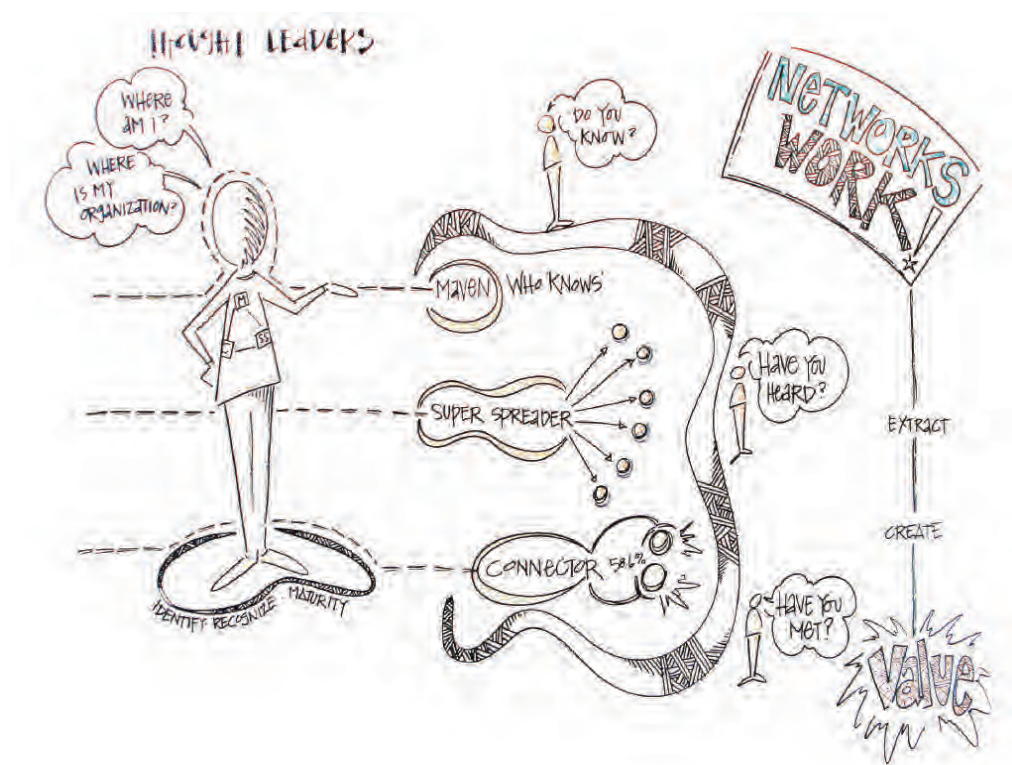 THOUGHT LEADERS
WHERE
AM I?
WHERE
IS MY
ORGANIZATION?
M
SS
IDENTIFY·RECOGNIZE· MATURITY
DO YOU
KNOW?
MAVEN WHO 'KNOWS'
SUPER SPREADER
HAVE YOU
HEARD?
CONNECTOR 58.6%
HAVE YOU
MET?
NETWORKS
WORK!
EXTRACT
CREATE
Value